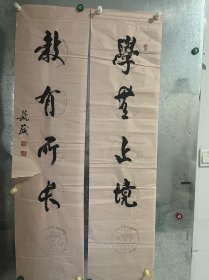 學無止境
教有所長